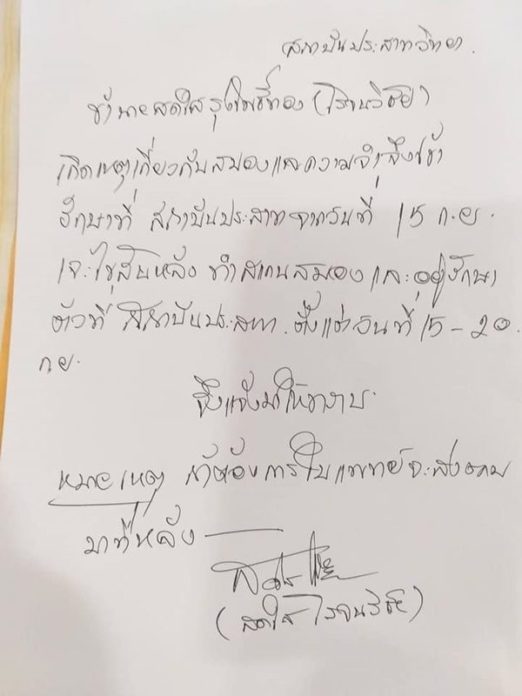 สถาบันประสาทวิทยา.
ข้านายสดใส รุ่งโพธิ์ทอง (โรจนวิชัย)
เกิดเหตุเกี่ยวกับสมองและความจำจึงเข้า
รักษาที่ สถาบันประสาท จากวันที่ 15 ก.ย.
เจาะไขสันหลัง ทำสแกนสมอง และอยู่รักษา
ตัวที่ สถาบันประสาท. ตั้งแต่วันที่ 15 - 20
ก.ย.
จึงแจ้งมาให้ทราบ.
หมายเหตุ ถ้าต้องการใบแพทย์จะส่งตาม
มาทีหลัง
(สดใส โรจนวิชัย)